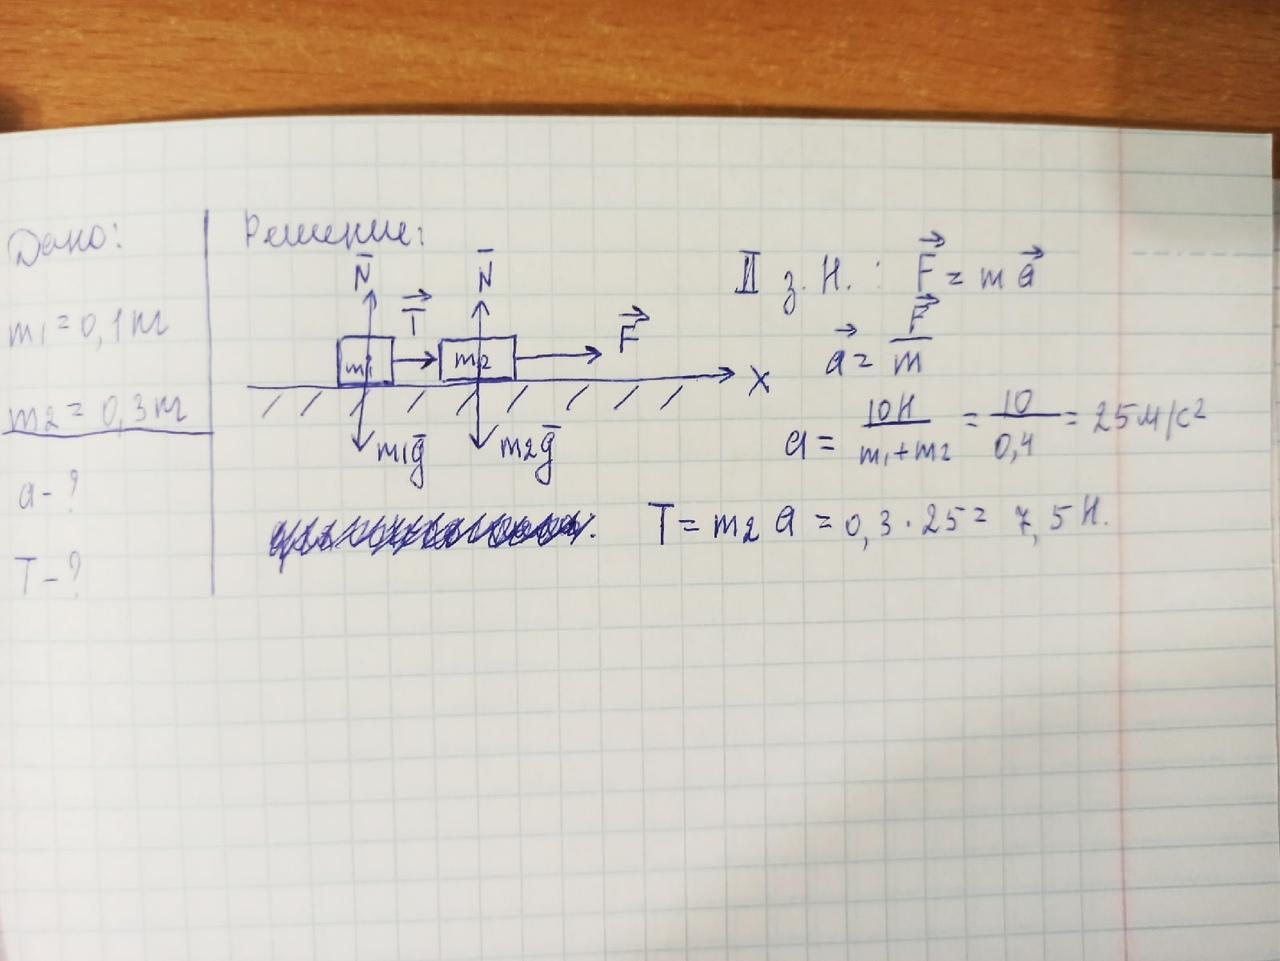 Дано:
m1 = 0,1 кг
m2 = 0,3 кг
a - ?
T - ?
Решение:
N N
T F
m1 m2 X
m1g m2g
II з. Н. : F = m a
a = F/m
a = 10Н/(m1+m2) = 10/0,4 = 25 м/с²
T = m2 a = 0,3 · 25 = 7,5 Н.